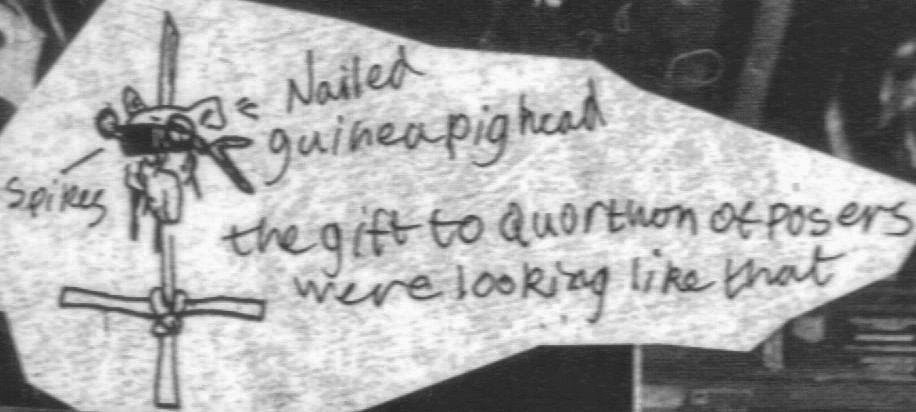 Nailed
guineapighead
Spikes
the gift to Quorthon of posers
were looking like that